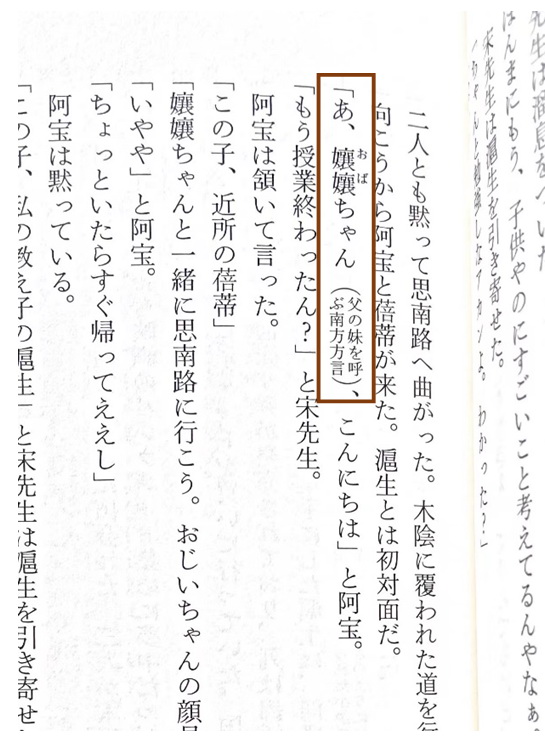 先生は溜息をついた
ほんまにもう、子供やのにすごいこと考えてるんやなぁ。
宋先生は滬生を引き寄せた。
わかった？」
二人とも黙って思南路へ曲がった。木陰に覆われた道を行
向こうから阿宝と蓓蒂が来た。滬生とは初対面だ。
「あ、嬢嬢ちゃん（父の妹を呼ぶ南方方言）、こんにちは」と阿宝。
「もう授業終わったん？」と宋先生。
阿宝は頷いて言った。
「この子、近所の蓓蒂」
「嬢嬢ちゃんと一緒に思南路に行こう。おじいちゃんの顔見
「いやや」と阿宝。
「ちょっといたらすぐ帰ってええし」
阿宝は黙っている。
「この子、私の教え子の滬生」と宋先生は滬生を引き寄せ